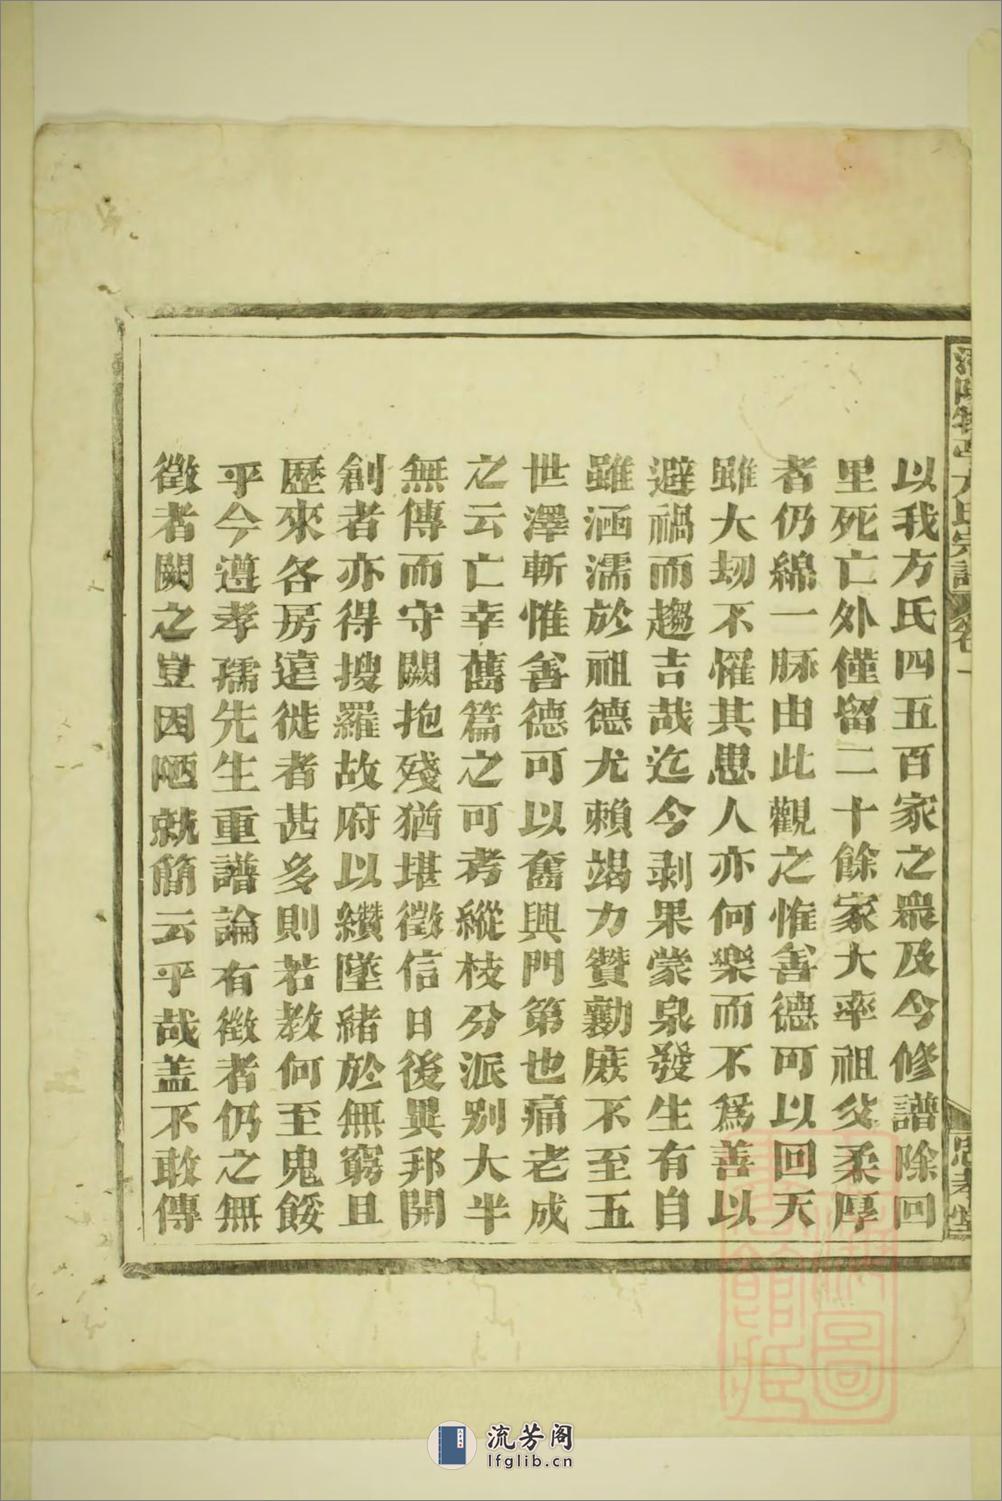 以我方氏四五百家之眾及今修譜除回
里死亡外僅留二十餘家大率祖父柔厚
者仍綿一脉由此觀之惟善德可以回天
雖大刼不懼其患人亦何樂而不爲善以
避禍而趨吉哉迄今剥果蒙泉發生有自
雖涵濡於祖德尤賴竭力贊勷庶不至五
世澤斬惟善德可以奮興門第也痛老成
之云亡幸舊篇之可考縱枝分派别大半
無傳而守闕抱殘猶堪徵信日後異邦開
創者亦得搜羅故府以纘墜緒於無窮且
歷來各房遠徙者甚多則若教何至鬼餒
乎今遵孝孺先生重譜論有徵者仍之無
徵者闕之豈因陋就簡云乎哉盖不敢傳
方氏宗譜 卷一
流芳阁
lfglib.cn